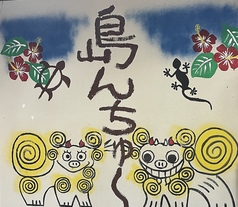 島んちゅ〜